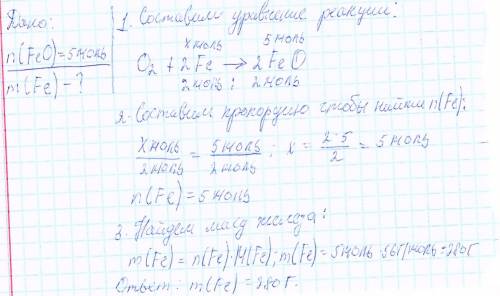 Дано:
n(FeO)=5моль
m(Fe)-?
1. Составим уравнение реакции:
x моль 5 моль
O₂ + 2Fe → 2FeO
2моль : 2моль
2. Составим пропорцию чтобы найти n(Fe):
x моль / 2моль = 5моль / 2моль ; x = 2·5 / 2 = 5моль
n(Fe)=5моль
3. Найдем массу железа:
m(Fe)= n(Fe)·M(Fe); m(Fe)= 5моль·56г/моль=280г.
Ответ: m(Fe)=280г.